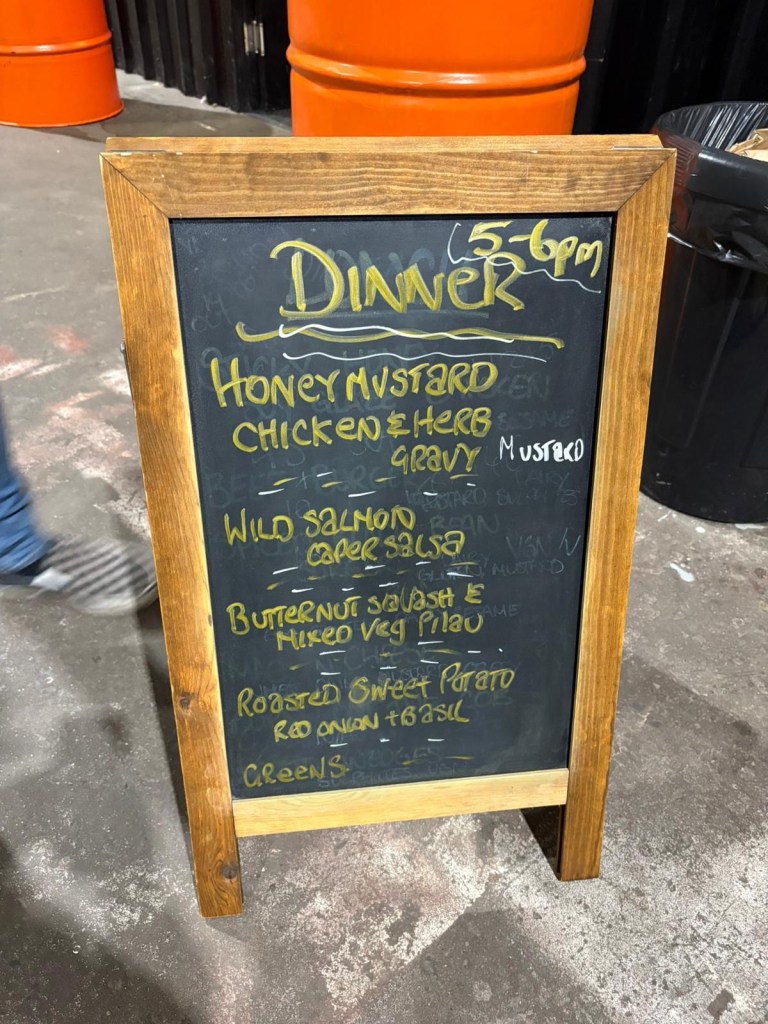 5-6pm
DINNER
HONEY MUSTARD
CHICKEN & HERB
GRAVY
MUSTARD
WILD SALMON
CAPER SALSA
BUTTERNUT SQUASH &
MIXED VEG PILAU
ROASTED SWEET POTATO
RED ONION + BASIL
GREENS